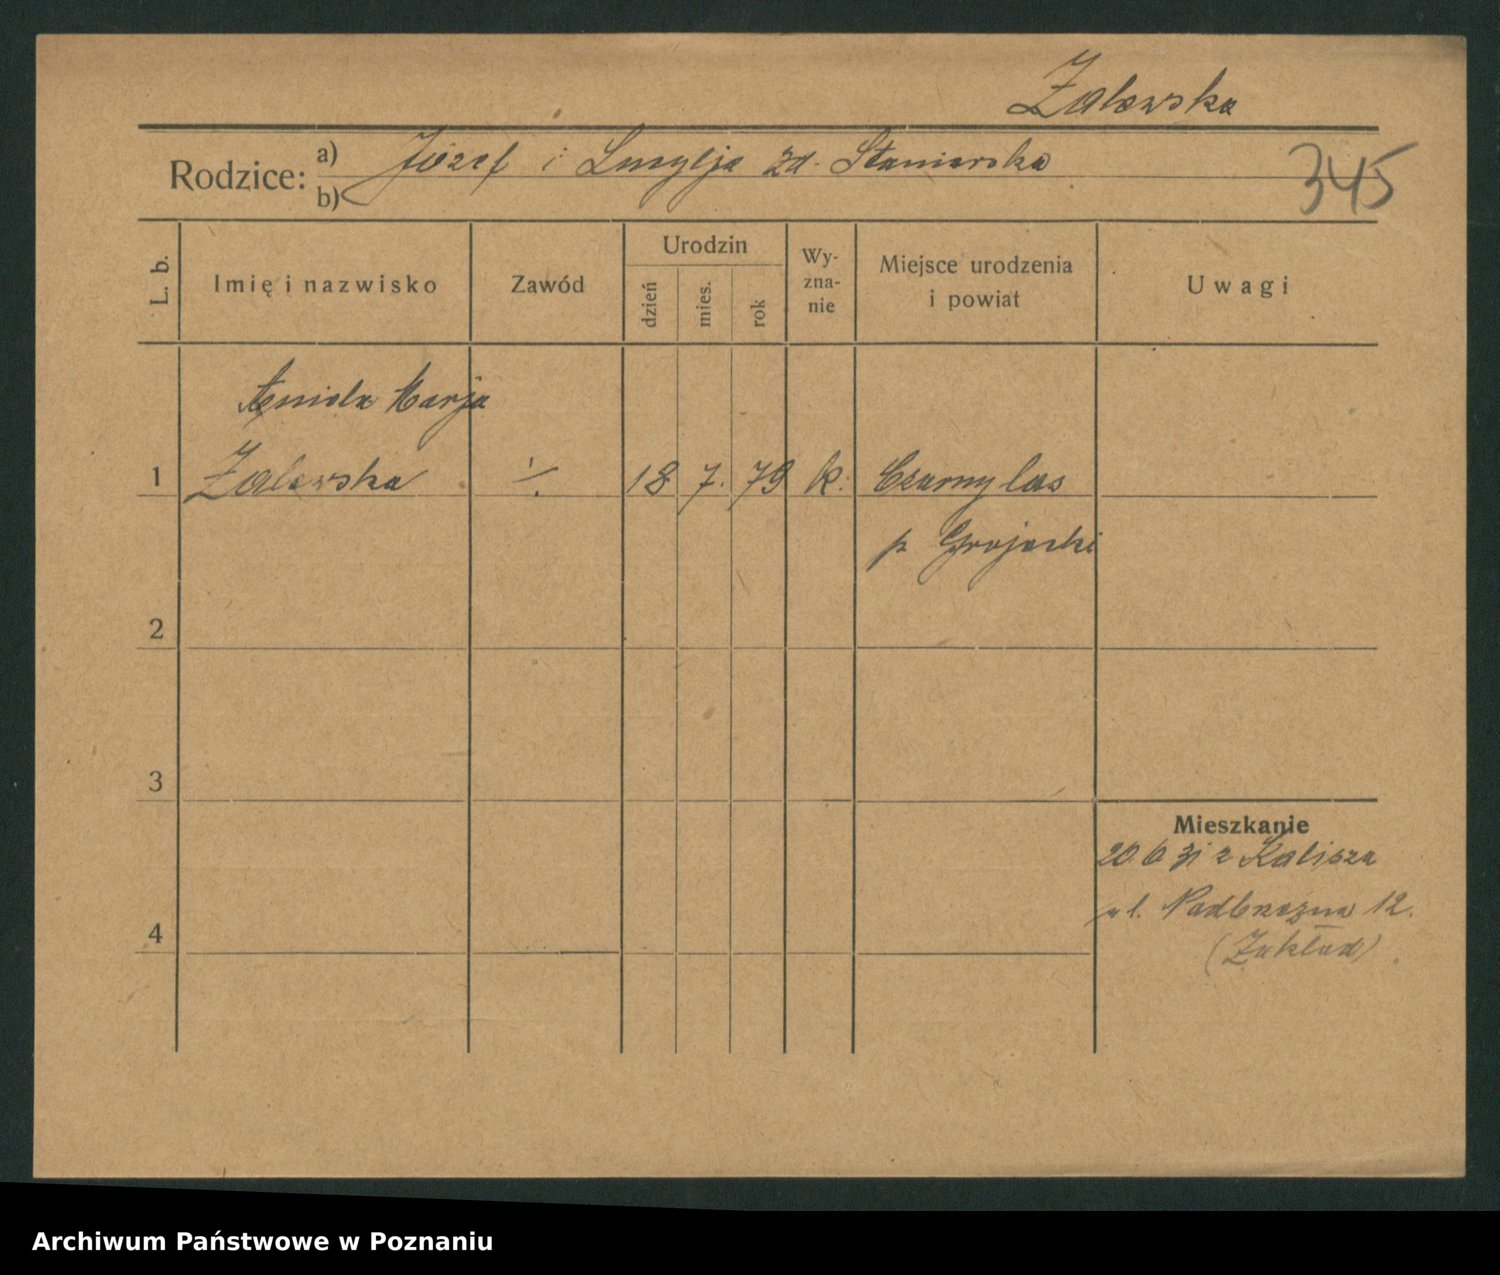 Zalewska
Rodzice: a) Józef i Lucylja zd. Staniarska
b)
345
L. b. Imię i nazwisko Zawód Urodzin dzień mies. rok Wy-zna-nie Miejsce urodzenia i powiat Uwagi
Aniela Marja
1 Zalewska ./. 18 7. 79 k. Czarny las
p Grojecki
2
3
Mieszkanie
20.6 31 z Kalisza
4 ul. Nadbrzeżna 12.
(Zakład)
Archiwum Państwowe w Poznaniu